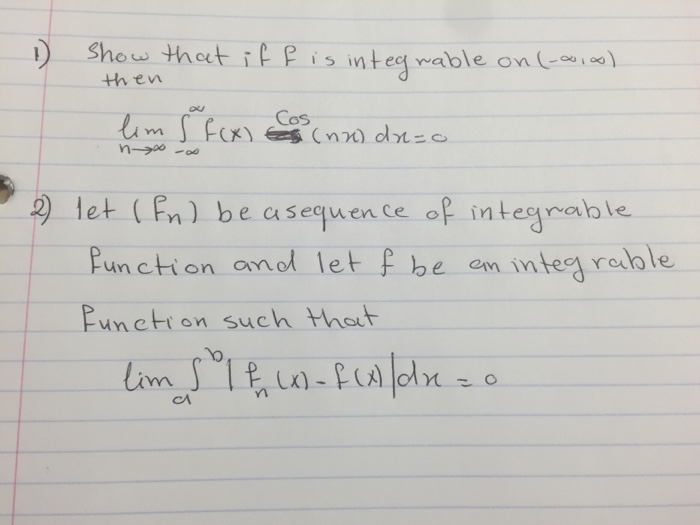 1) Show that if f is integrable on (-∞,∞)
then
lim n→∞ ∫ -∞ ∞ f(x) Cos (nx) dx = 0
2) let (fn) be a sequence of integrable
function and let f be an integrable
function such that
lim a∫b | fn (x) - f(x) | dx = 0